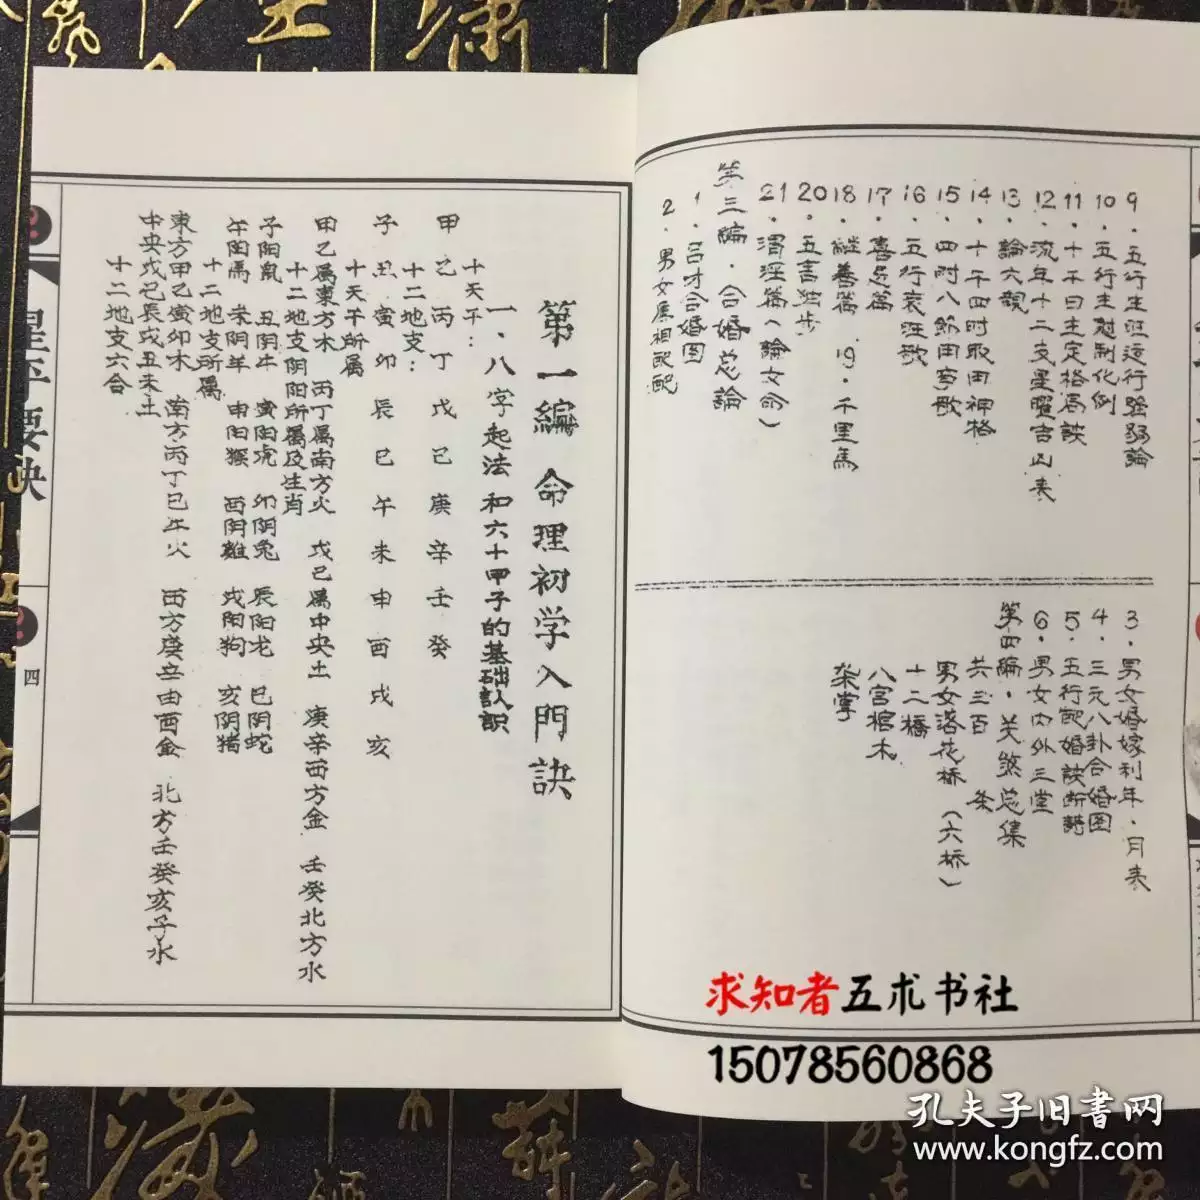 9. 五行生旺运行强弱論
10. 五行生尅制化例
11. 十干日主定格局訣
12. 流年十二支星曜吉凶表
13. 論六親
14. 十干四时取用神格
15. 四时八節用事歌
16. 五行衰旺歌
17. 喜忌篇
18. 継善篇 19. 千里馬
20. 五言独步
21. 渭涇篇（論女命）
第三编. 合婚总論
1. 吕才合婚图
2. 男女屬相配配
3. 男女婚嫁利年.月表
4. 三元八卦合婚图
5. 五行配婚訣断詩
6. 男女内外三堂
第四编. 关煞总集
共三百 条
男女落花桥（六桥）
十二橋
八宫棺木
架掌
第一編 命理初学入門訣
一、八字起法和六十甲子的基础认识
十天干:
甲乙丙丁戊己庚辛壬癸
十二地支:
子丑寅卯辰巳午未申酉戌亥
十天干所属
甲乙属東方木 丙丁属南方火 戊己属中央土 庚辛西方金 壬癸北方水
十二地支阴阳所属及生肖
子阳鼠 丑阴牛 寅阳虎 卯阴兔 辰阳龙 巳阴蛇
午阳馬 未阴羊 申阳猴 酉阴雞 戌阳狗 亥阴猪
十二地支所属
東方甲乙寅卯木 南方丙丁巳午火 西方庚辛申酉金 北方壬癸亥子水
中央戊己辰戌丑未土
十二地支六合
星平要诀
四
求知者五术书社
15078560868
孔夫子旧書网
www.kongfz.com